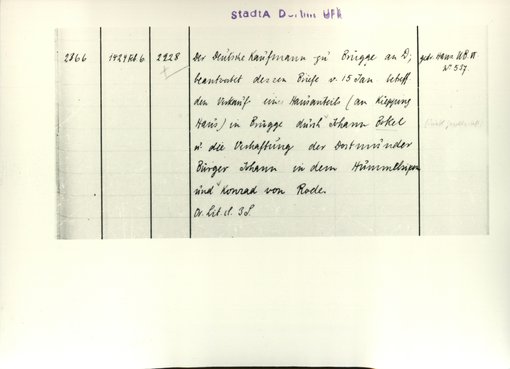 StadtA Dortm Urk
2866 1429 Feb. 6 2928 Der Deutsche Kaufmann zu Brügge an D; gedr. Hans. U B. VI
beantwortet dessen Briefe v. 15 Jan. betreff N° 557.
den Verkauf eines Hausanteils (an Kiepung
Haus) in Brügge durch Johann Eckel
u die Verhaftung der Dortmunder
Bürger Johann in dem Hümmelrysen
und Konrad von Rode.
Or. Lit. cl. 3 S.